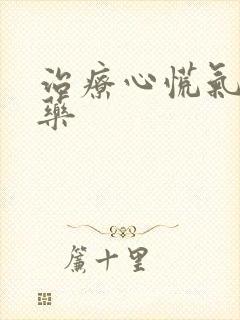 治療心慌氣
藥
簾十里